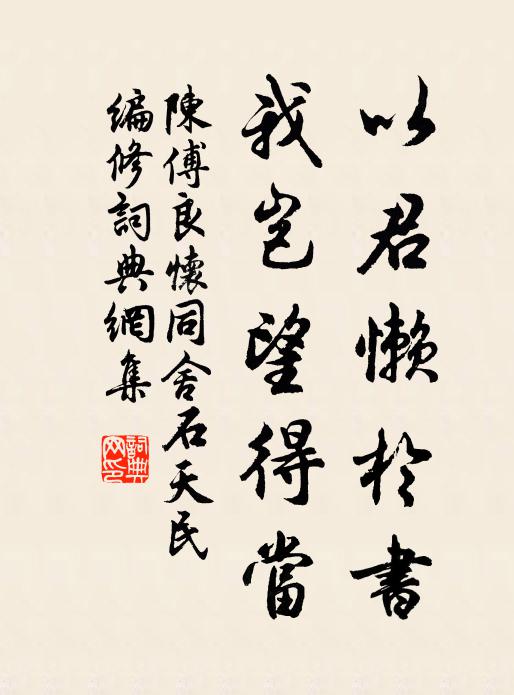 以君懶於書
我豈望得當
陳傅良懷同舍石天民
編修詞典網集
詞典网印